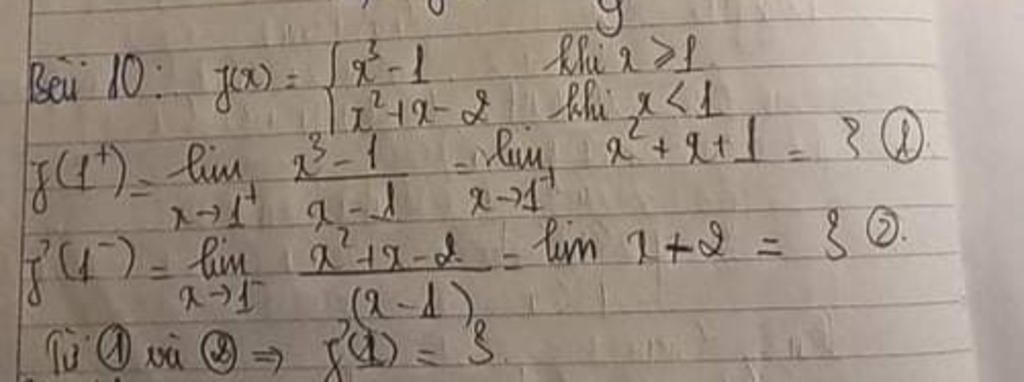 Bài 10: f(x) = { x³ - 1 khi x ≥ 1
x² + x - 2 khi x < 1
f(1⁺) = lim x→1⁺ (x³ - 1)/(x - 1) = lim x→1⁺ x² + x + 1 = 3 ①
f'(1⁻) = lim x→1⁻ (x² + x - 2)/(x - 1) = lim x + 2 = 3 ②.
Từ ① và ② ⇒ f'(1) = 3.